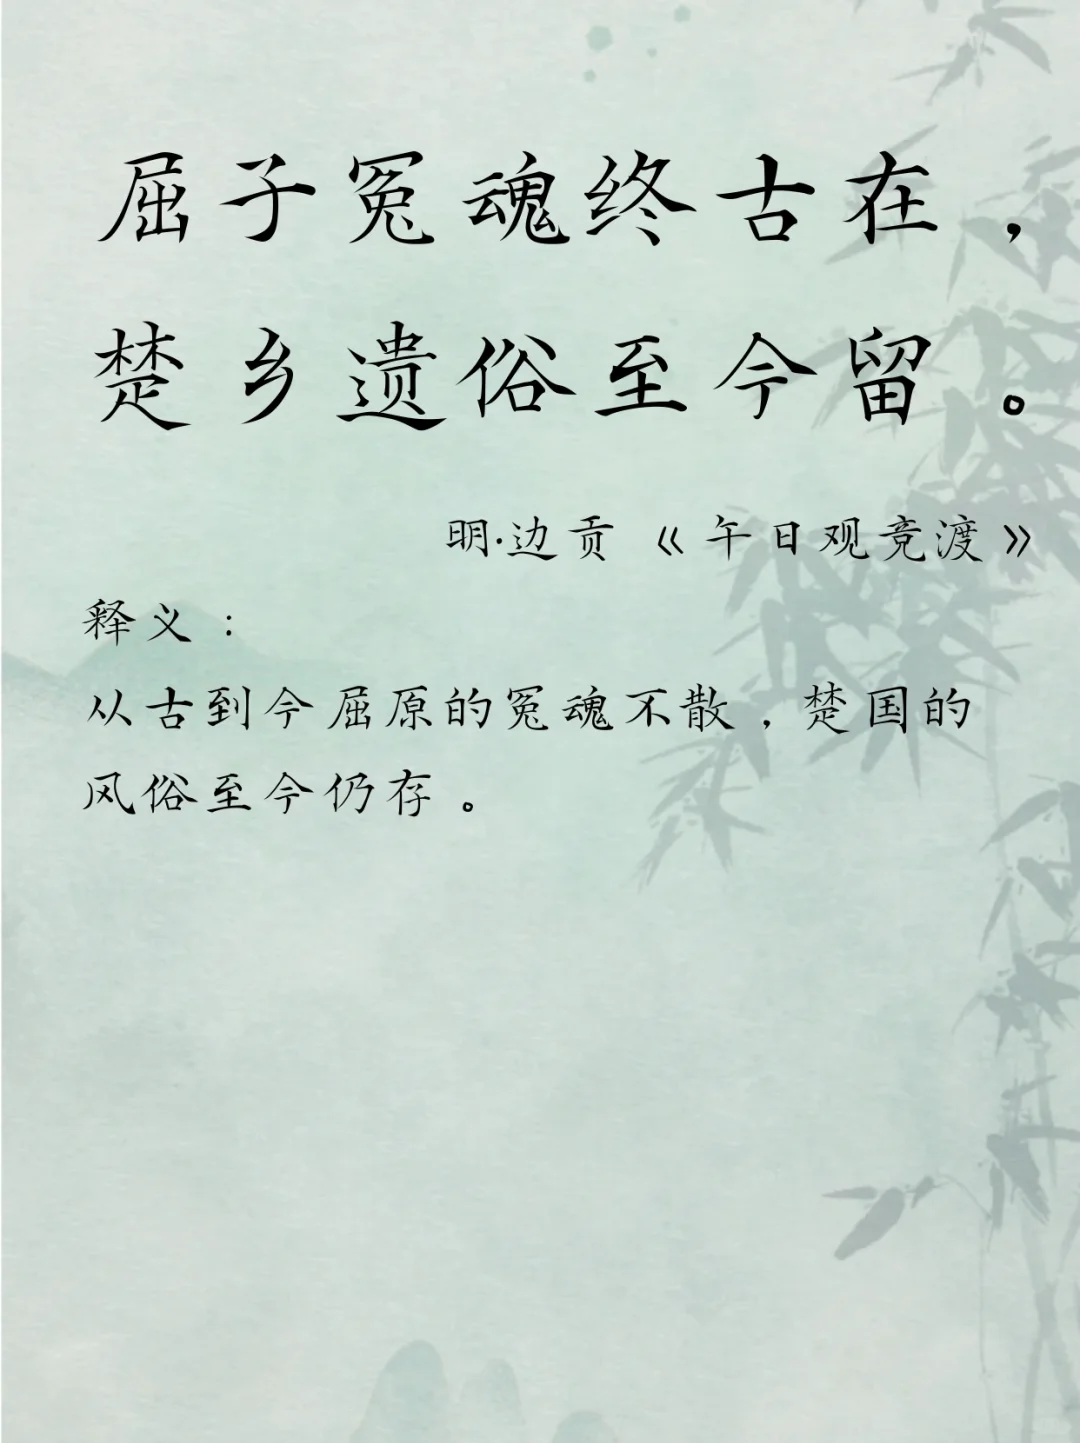 屈子冤魂终古在，
楚乡遗俗至今留。
明·边贡《午日观竞渡》
释义：
从古到今屈原的冤魂不散，楚国的
风俗至今仍存。